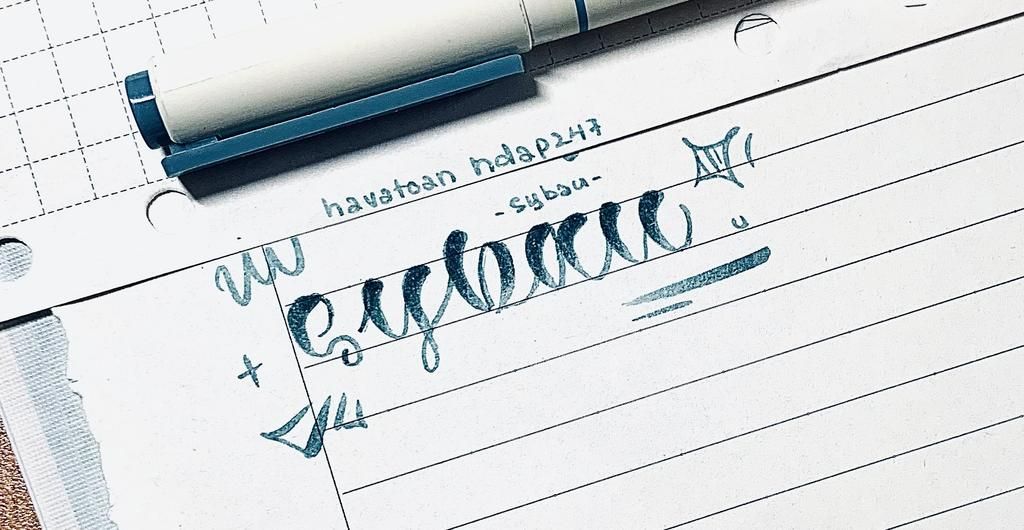 havatoan ndap247
-sybau-
sybau